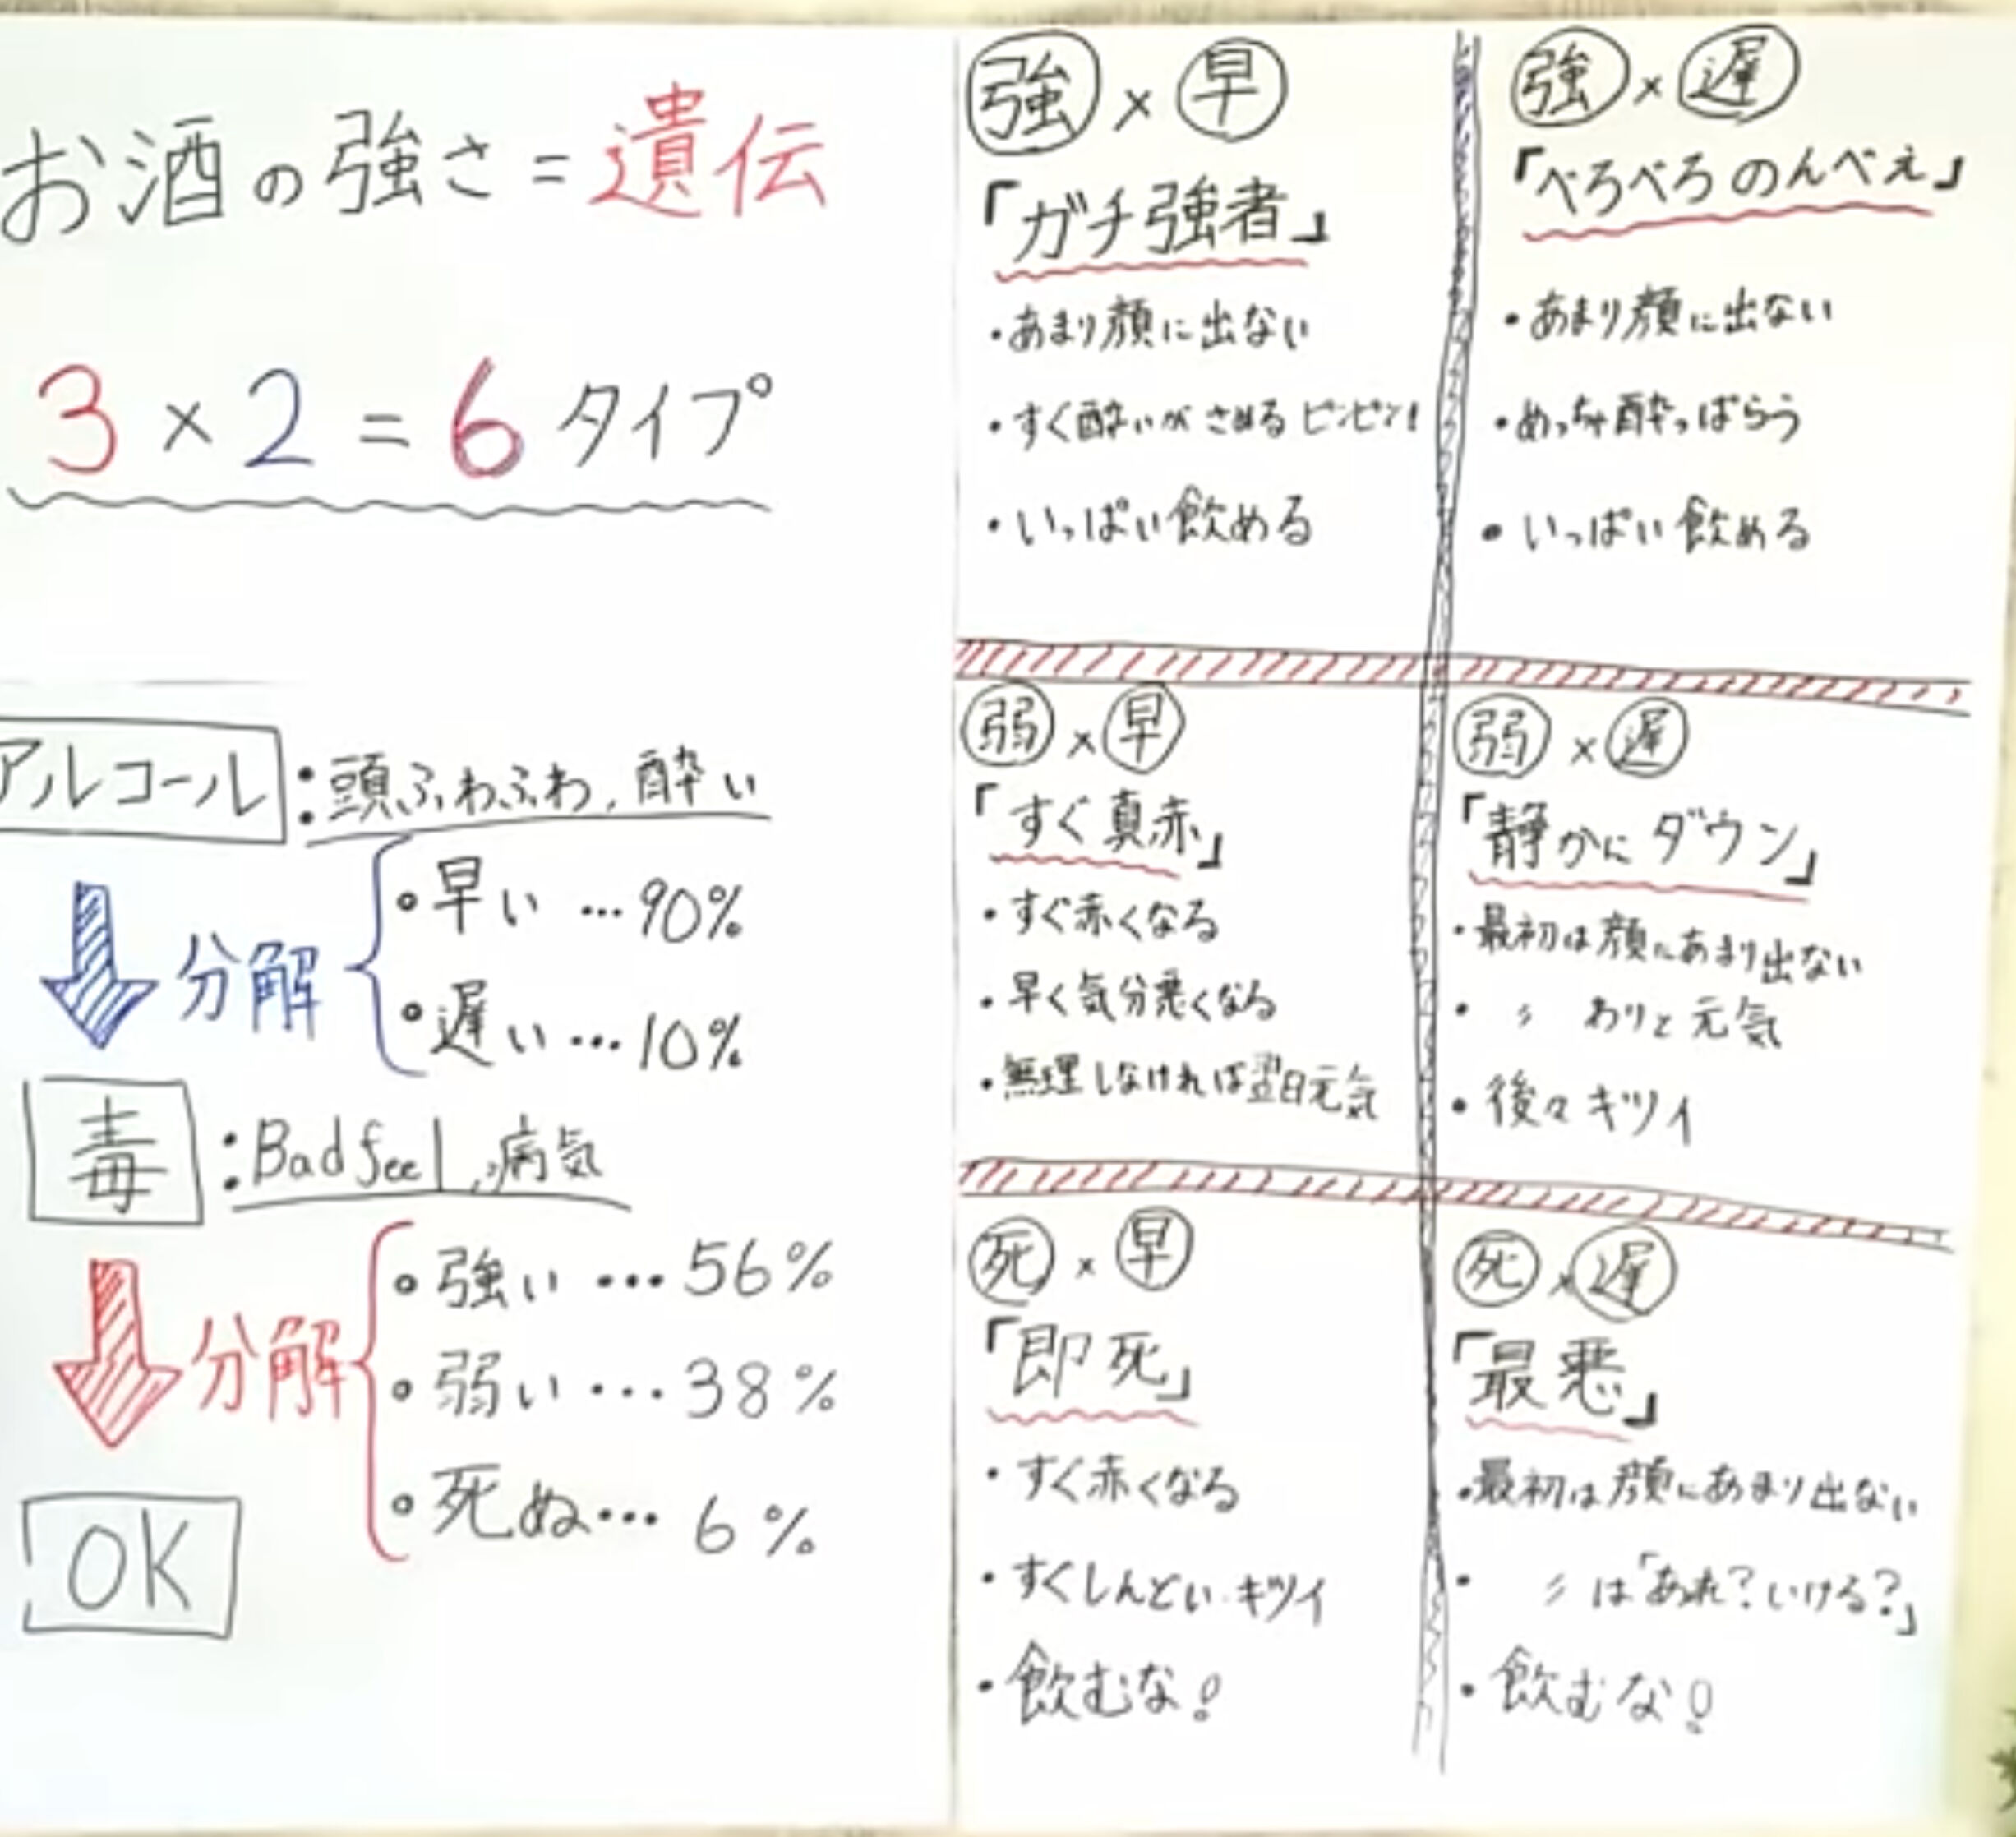 お酒の強さ=遺伝
3×2=6タイプ
アルコール:頭ふわふわ、酔い
分解
・早い…90%
・遅い…10%
毒:Bad feel、病気
分解
・強い…56%
・弱い…38%
・死ぬ…6%
OK
強×早
「ガチ強者」
・あまり顔に出ない
・すぐ酔いがさめるピンピン!
・いっぱい飲める
強×遅
「べろべろのんべぇ」
・あまり顔に出ない
・めっちゃ酔っぱらう
・いっぱい飲める
弱×早
「すぐ真赤」
・すぐ赤くなる
・早く気分悪くなる
・無理しなければ翌日元気
弱×遅
「静かにダウン」
・最初は顔にあまり出ない
・〃 わりと元気
・後々キツイ
死×早
「即死」
・すぐ赤くなる
・すぐしんどい・キツイ
・飲むな!
死×遅
「最悪」
・最初は顔にあまり出ない
・〃は「あれ?いける?」
・飲むな!